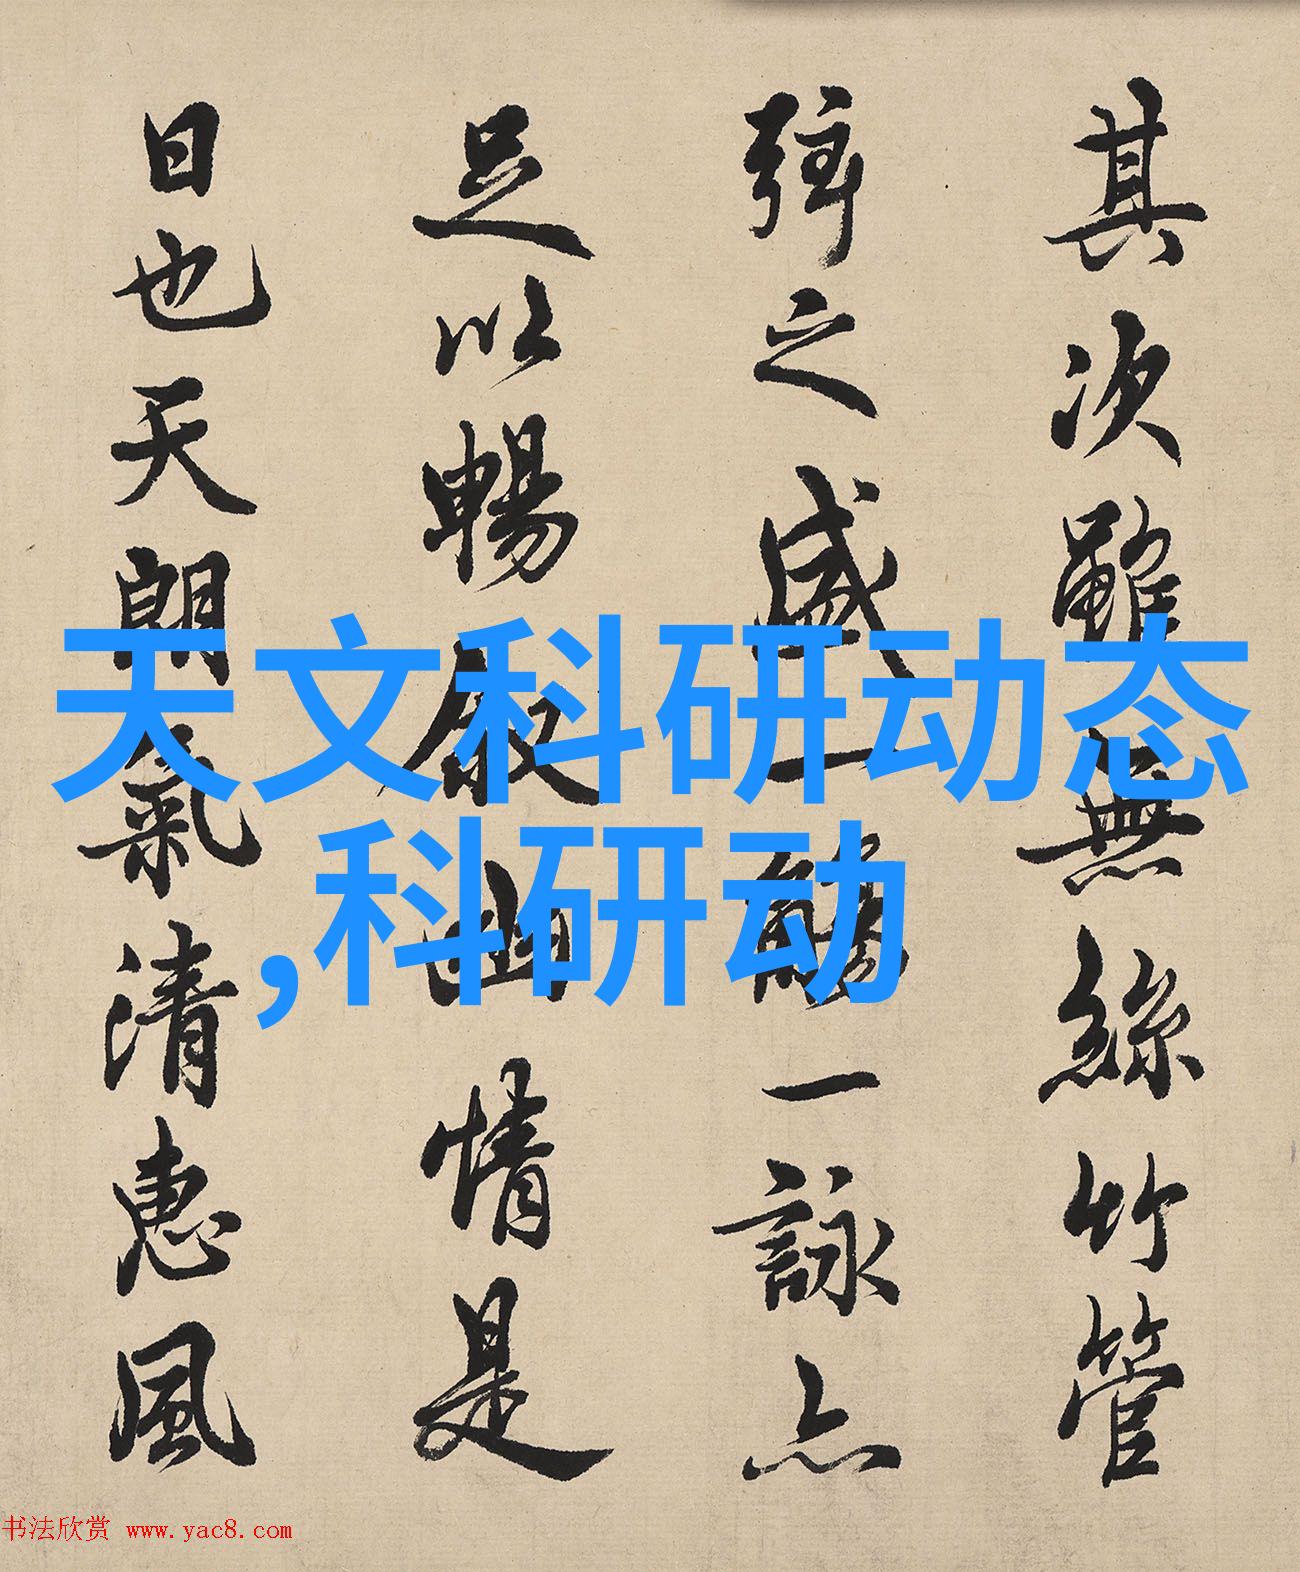 其次雖無絲竹管
弦之盛一觴一詠亦
足以暢叙幽情是
日也天朗氣清惠風
天文科研动态
,科研动
书法欣赏 www.yac8.com